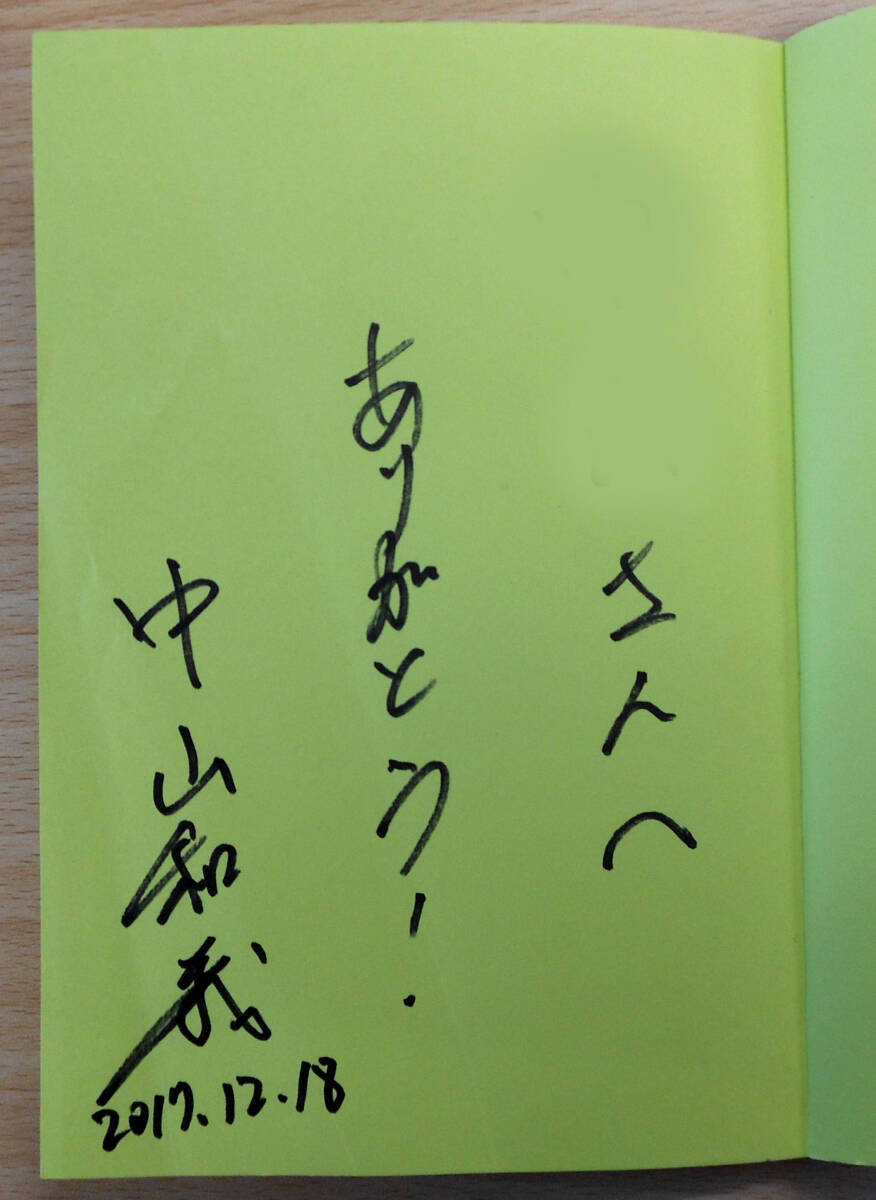 さんへ
ありがとう!
中山和義
2017.12.18